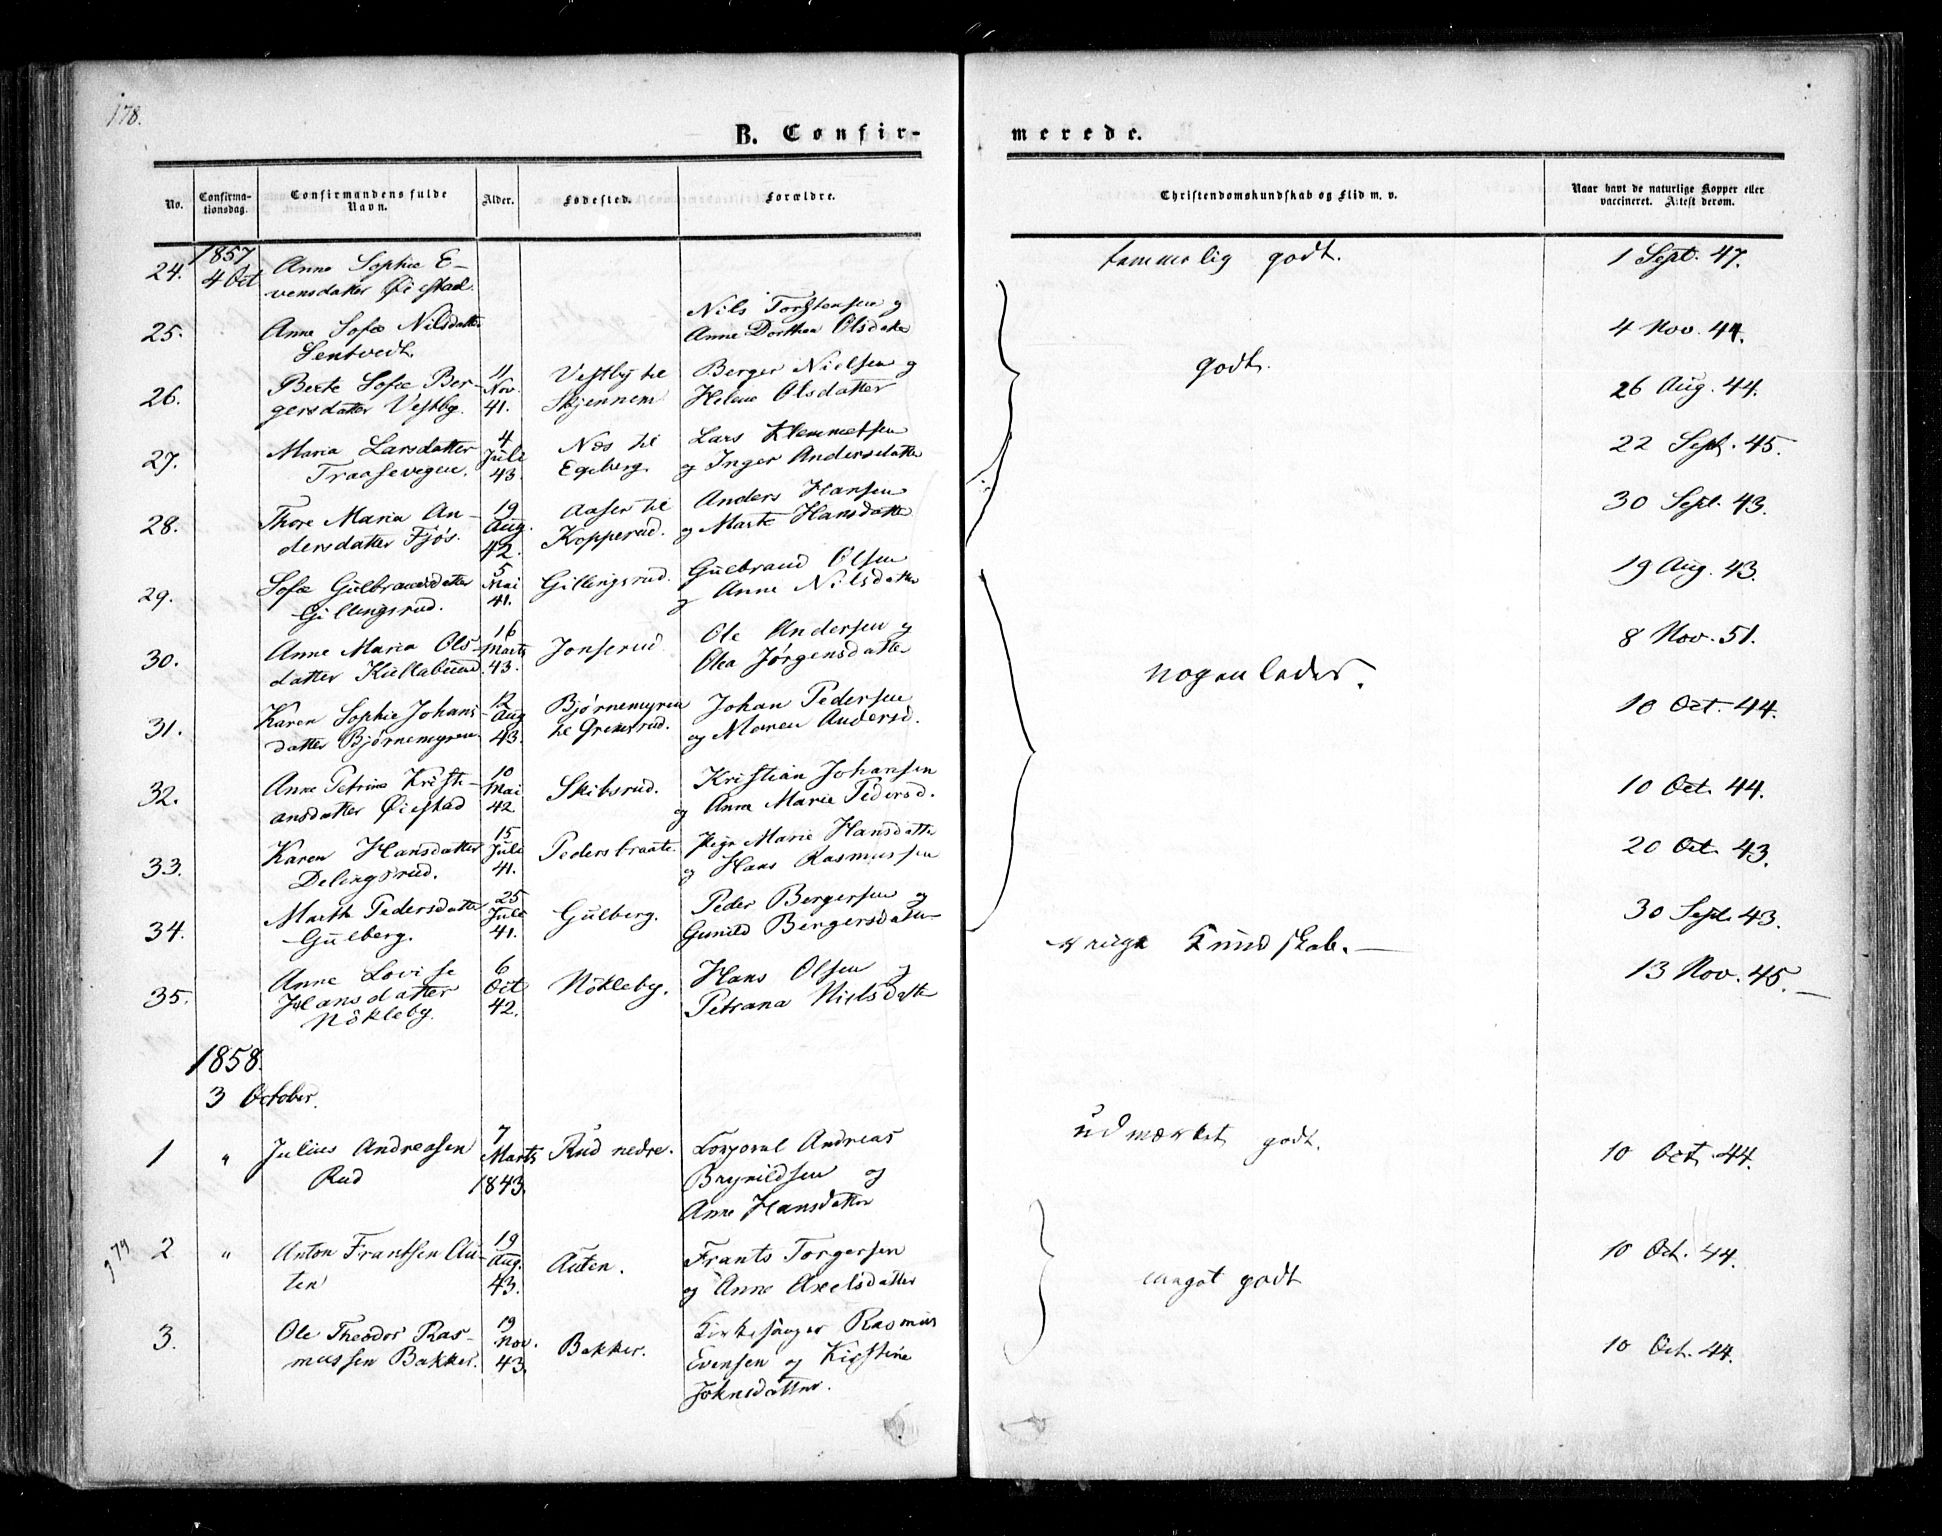 178.
B. Confir-
merede.
No.
Confirma-
tionsdag.
Confirmandens fulde
Navn.
Alder.
Fødested.
Forældre.
Christendomskundskab og Flid m. v.
Naar havt de naturlige Kopper eller
vaccineret. Attest derom.
1857
24. 4 Oct Anne Sophie E- temmelig godt. 1 Sept. 47.
vensdatter Øiestad
25. Anne Sofie Nilsdatter Nils Torstensen og 4 Nov. 44.
Sentvedt. Anne Dorthea Olsdatter
26. Berte Sofie Ber- 11 Vestby til Berger Nielsen og godt. 26 Aug. 44.
gersdatter Vestby. Nov. 41. Skjennem Helene Olsdatter
27. Maria Larsdatter 4 Næs til Lars Klemmetsen 22 Sept. 45.
Traasevegen. Juli 43. Egeberg og Inger Andersdatter
28. Thore Maria An- 19 Aaser til Anders Hansen 30 Sept. 43.
dersdatter Fjøs. Aug. 42. Kopperud. og Marte Hansdatter
29. Sofie Gulbrandsdatter 5 Mai Gillingsrud. Gulbrand Olsen 19 Aug. 43.
Gillingsrud. 41. og Anne Nilsdatter
30. Anne Maria Ols- 16 Marts Jonsrud Ole Andersen og 8 Nov. 51.
datter Kiellabund 43. Olea Jørgensdatter nogenledes.
31. Karen Sophie Johans- 12 Aug Bjørnemyren Johan Pedersen 10 Oct. 44.
datter Bjørnemyren 43. til Gremsrud. og Maren Andersd.
32. Anne Petrine Kristi- 10 Mai Skibsrud. Kristian Johansen 10 Oct. 44.
ansdatter Øiestad 42 og Anne Marie Pedersd.
33. Karen Hansdatter 15 Juli Pedersbraate. Pige Marie Hansdatter 20 Oct. 43.
Delingsrud. 41. og Hans Rasmussen
34. Marth Pedersdatter 25 Juli Gulberg. Peder Bergersen og 30 Sept. 43.
Gulberg. 41. Gunild Bergersdatter
svage Kundskab.
35. Anne Lovise 6 Oct Nökleby. Hans Olsen og 13 Nov. 45.
Hansdatter 42. Petrana Nielsdatter
Nökleby.
1858.
3 October.
1 " Julius Andreasen 7 Marts Rud nedre. Korporal Andreas udmærket godt. 10 Oct. 44.
Rud 1843. Brynildsen og
Anne Hansdatter
2 " Anton Frantsen Au- 19 Aug. Auten. Frants Torgersen 10 Oct. 44.
ten 43. og Anne Axelsdatter meget godt
3. Ole Theodor Ras- 19 Nov. Bakker. Kirkesanger Rasmus 10 Oct. 44.
mussen Bakker. 43. Evensen og Kirstine
Johnsdatter.